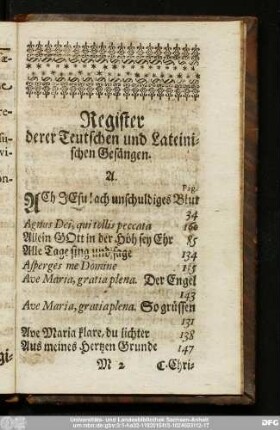 Register
derer Teutschen und Lateini-
schen Gesängen.
A.
Pag.
ACh JEsu! ach unschuldiges Blut
34
Agnus Dei, qui tollis peccata 160
Allein GOtt in der Höh sey Ehr 85
Alle Tage sing und sage 134
Asperges me Domine 115
Ave Maria, gratia plena. Der Engel
143
Ave Maria, gratia plena. So grüssen
131
Ave Maria klare, du lichter 138
Aus meines Hertzen Grunde 147
M 2 C. Chris-
Universitäts- und Landesbibliothek Sachsen-Anhalt